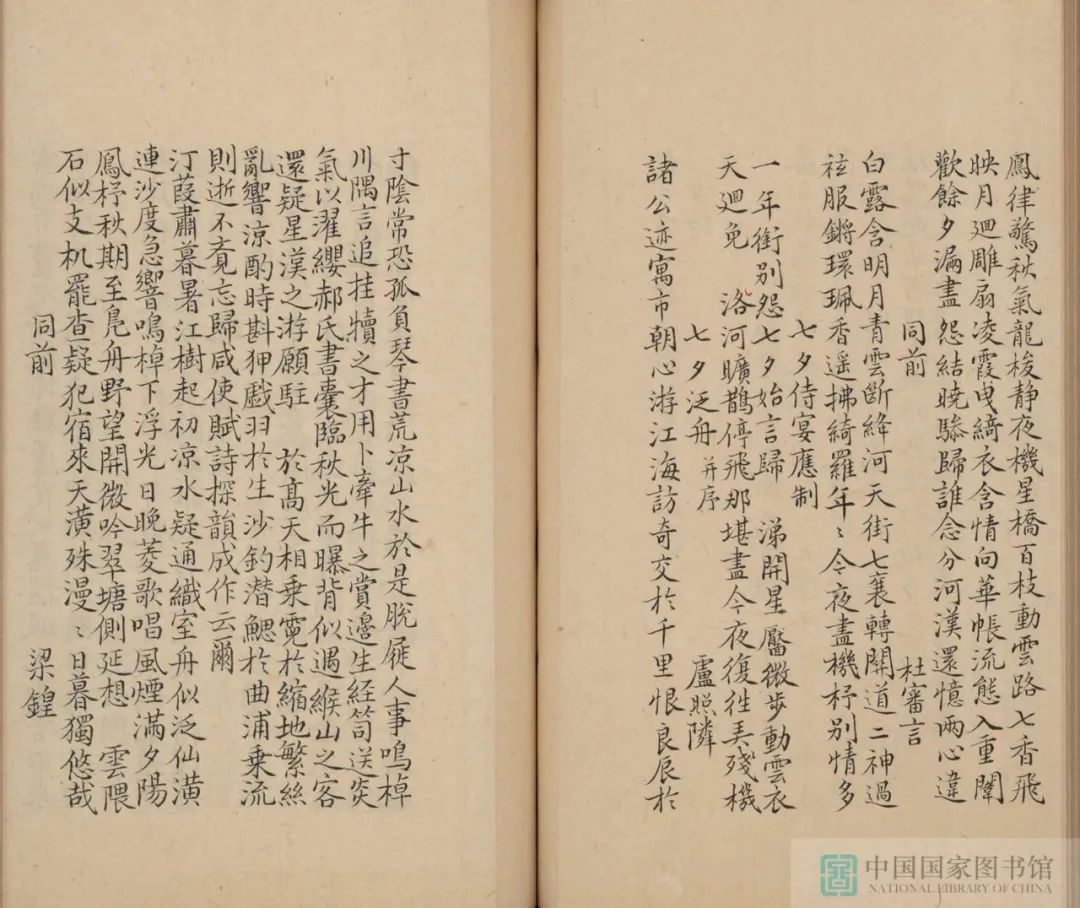 鳳律驚秋氣龍梭静夜機星橋百枝動雲路七香飛
映月迴雕扇凌霞曳綺衣含情向華帳流態入重闈
歡餘夕漏盡怨結曉驂歸誰念分河漢還憶兩心違
同前 杜審言
白露含明月青雲斷絳河天街七襄轉閣道二神過
袨服鏘環珮香遥拂綺羅年〻今夜盡機杼別情多
七夕侍宴應制
一年銜別怨七夕始言歸 涕開星靨微步動雲衣
天迴兔 洛河曠鵲停飛那堪盡今夜復徃弄殘機
七夕泛舟并序 盧照隣
諸公迹寓市朝心游江海訪奇交於千里恨良辰於
寸陰常恐孤負琴書荒凉山水於是脫屣人事鳴棹
川隅言追挂犢之才用卜牽牛之賞邊生經笥送炎
氣以濯纓郝氏書囊臨秋光而曝背似遇緱山之客
還疑星漢之游願駐 於高天相乗霓於縮地繁絲
亂響凉酌時斟狎戲羽於生沙釣潜鰓於曲浦乗流
則逝不覔忘歸咸使賦詩探韻成作云爾
汀葭肅暮暑江樹起初凉水疑通織室舟似泛仙潢
連沙度急響鳴棹下浮光日晚菱歌唱風煙滿夕陽
鳳杼秋期至鳬舟野望開微吟翠塘側延想 雲隈
石似支机罷查疑犯宿來天潢殊漫〻日暮獨悠哉
同前 梁鍠
中国国家图书馆
NATIONAL LIBRARY OF CHINA